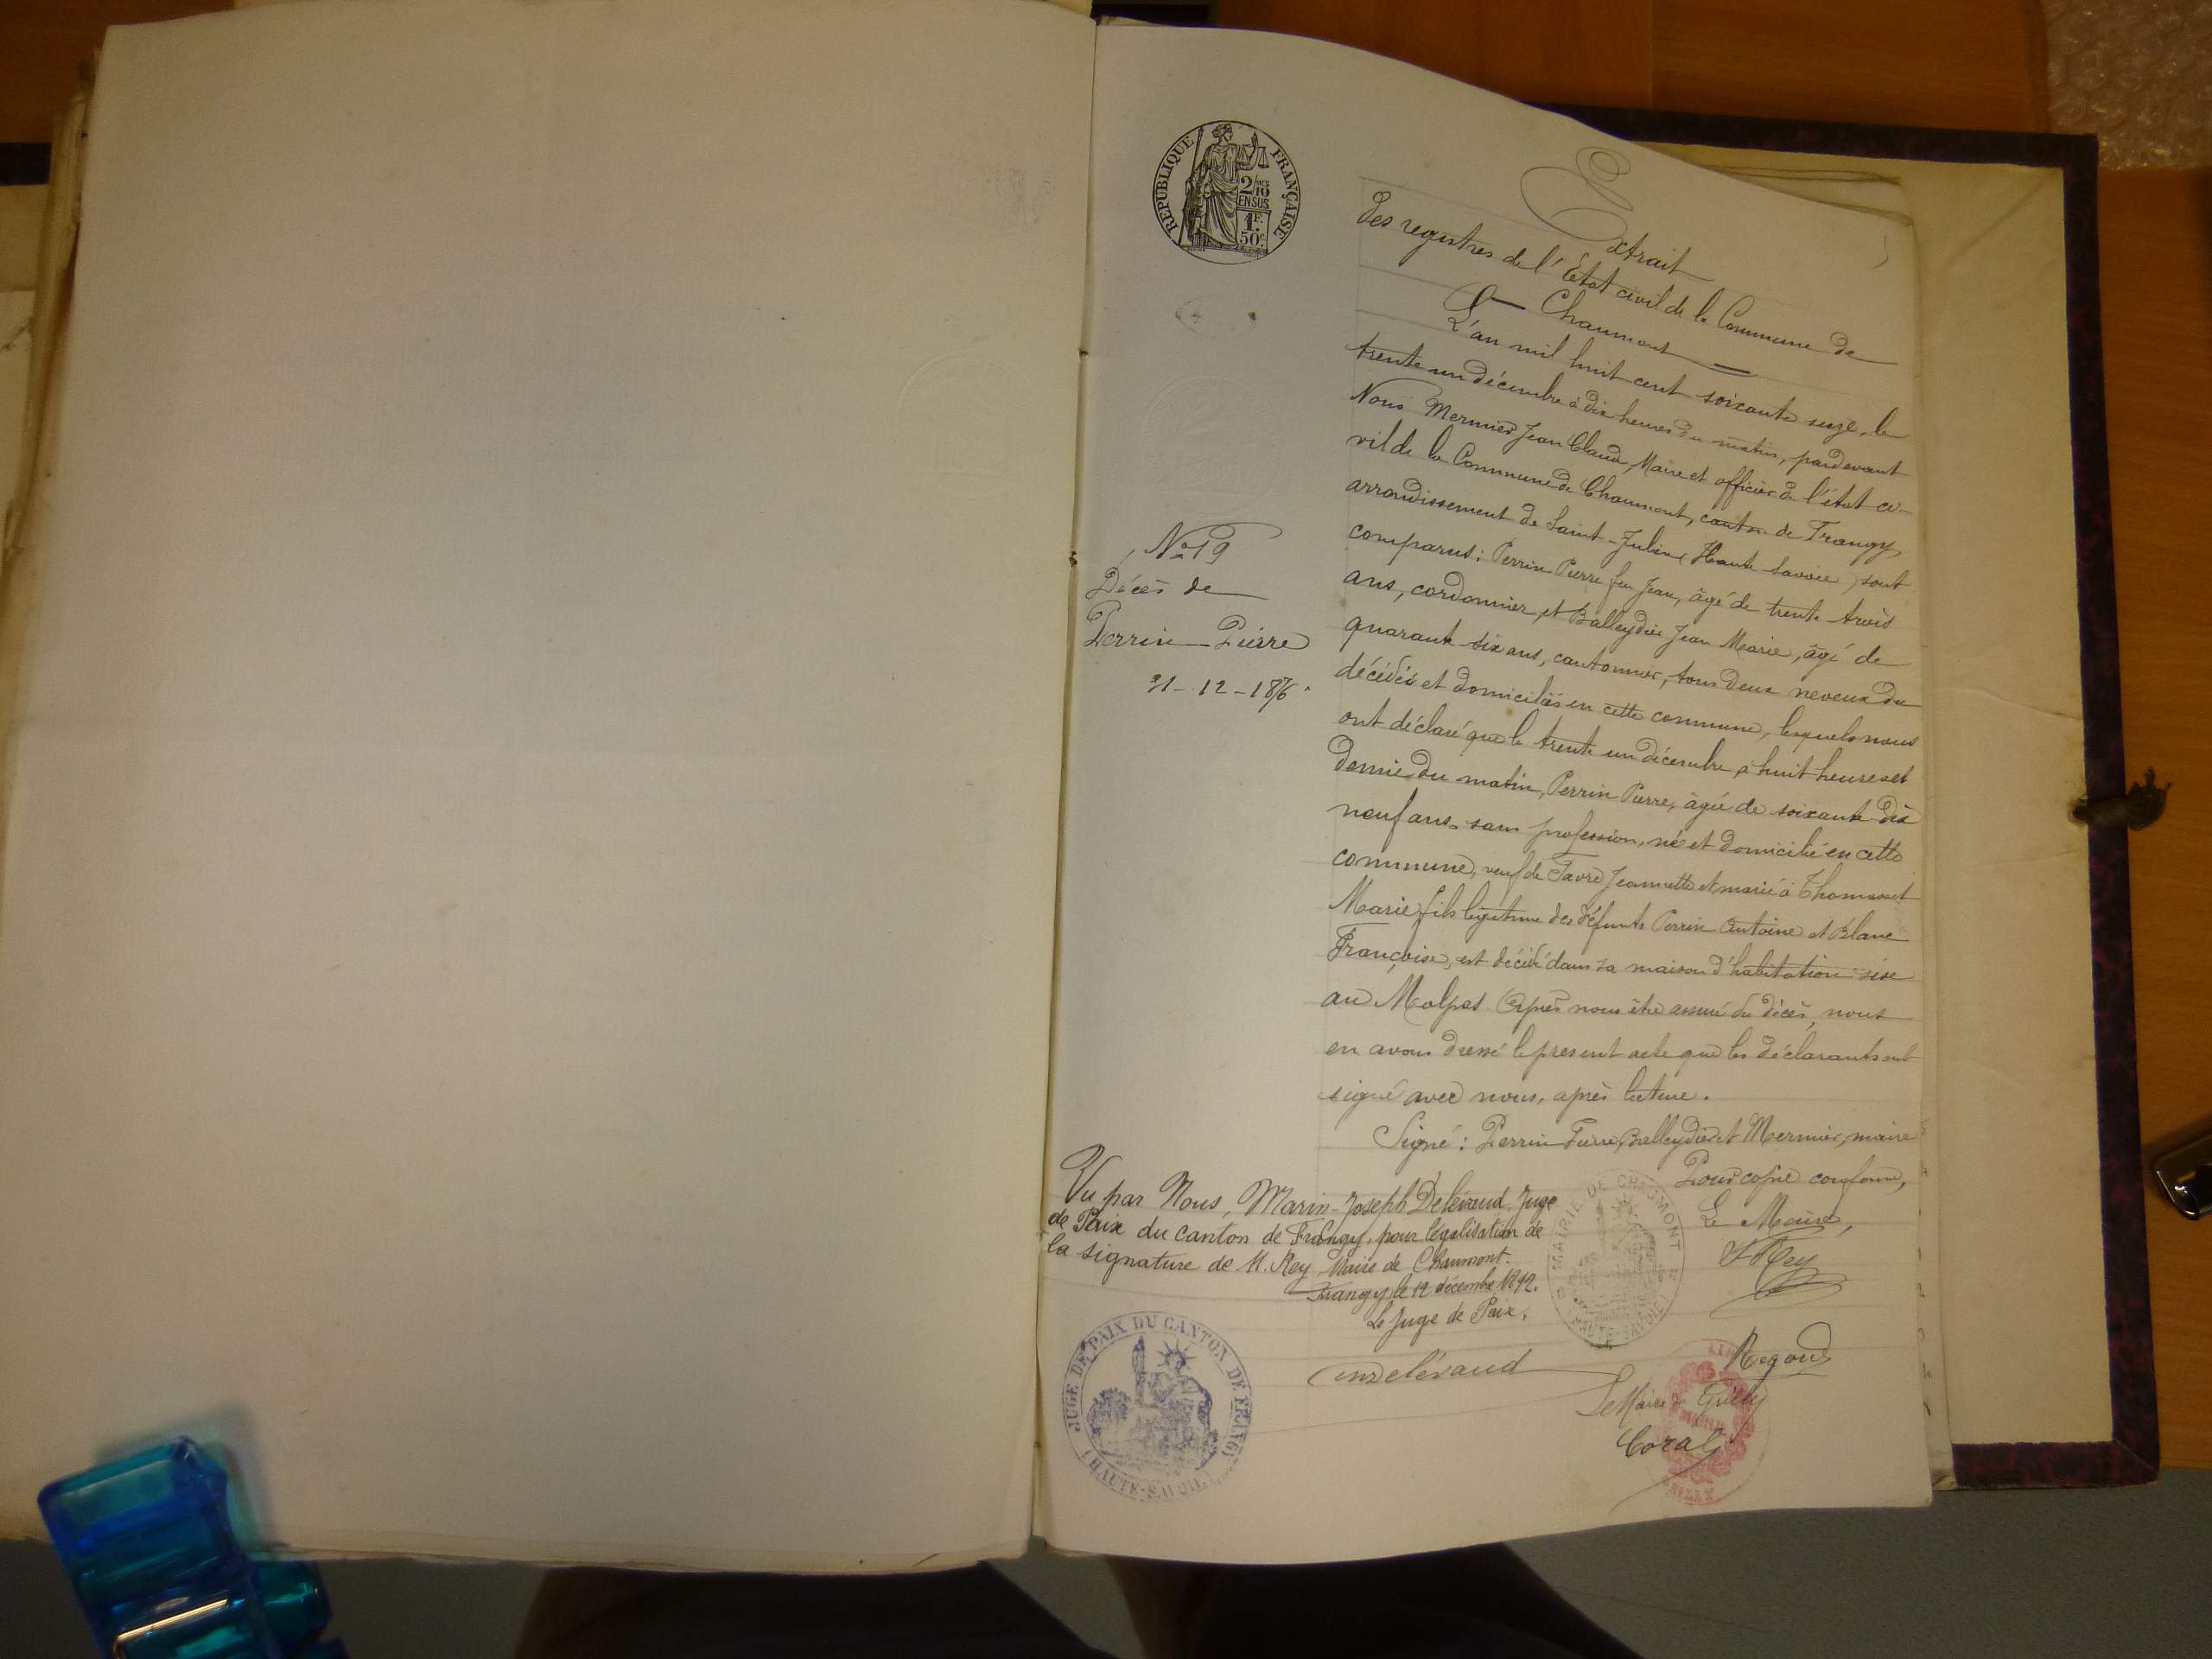 RÉPUBLIQUE FRANÇAISE
2/10
EN SUS
1F.
50c.
Extrait
des registres de l'Etat civil de la Commune de
Chaumont
L'an mil huit cent soixante seize, le
trente un décembre à dix heures du matin, pardevant
Nous Mermier Jean Claude, Maire et officier de l'état ci-
vil de la Commune de Chaumont, canton de Frangy
arrondissement de Saint-Julien (Haute Savoie) sont
comparus: Perrin Pierre feu Jean, âgé de trente trois
ans, cordonnier, et Balleydier Jean Marie, âgé de
quarante six ans, cantonnier, tous deux neveux du
décédé et domiciliés en cette commune, lesquels nous
ont déclaré que le trente un décembre à huit heures et
demie du matin, Perrin Pierre, âgé de soixante dix
neuf ans, sans profession, né et domicilié en cette
commune, veuf de Favre Jeannette et marié à Thomasset
Marie, fils légitime des défunts Perrin Antoine et Blanc
Françoise, est décédé dans sa maison d'habitation sise
au Malpas Après nous être assuré du décès, nous
en avons dressé le présent acte que les déclarants ont
signé avec nous, après lecture.
Signé: Perrin Pierre, Balleydier et Mermier, maire
Pour copie conforme,
Le Maire,
Rey
No 19
Décès de
Perrin Pierre
31-12-1876.
Vu par Nous, Marin-Joseph Deléraud, Juge
de Paix du canton de Frangy, pour légalisation de
la signature de M. Rey, Maire de Chaumont.
Frangy, le 12 décembre 1892.
Le Juge de Paix,
Deléraud
MAIRIE DE CHAUMONT
HAUTE-SAVOIE
JUGE DE PAIX DU CANTON DE FRANGY
(HAUTE-SAVOIE)
Le Maire de
Coral
MAIRIE